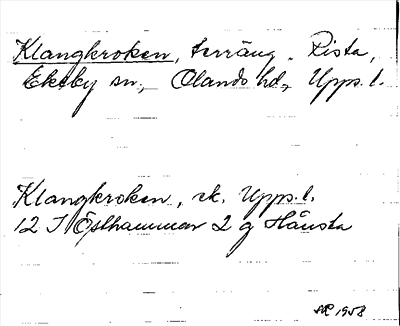 Klangkroken, terräng. Rista,
Ekeby sn, Olands hd, Upps. l.
Klangkroken, ek. Upps. l.
12 I Östhammar 2 g Hånsta
1958